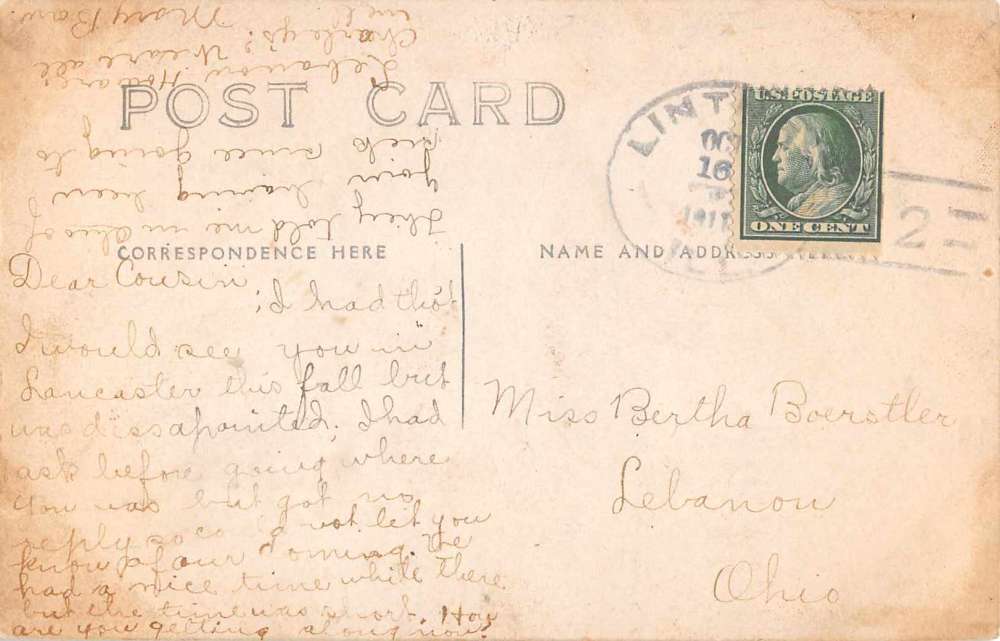 POST CARD
CORRESPONDENCE HERE
Dear Cousin;
I had tho't
I would see you in
Lancaster this fall but
was dissapointed. I had
ask before going where
you was but got no
reply so could not let you
know of our coming. We
had a nice time while there
but the time was short. How
are you getting along now?
They told me
your having been
sick since going to
Lebanon. How are
Charley's? We are all
well Mary
NAME AND ADDRESS HERE
LINT
OC
16
1911
U.S. POSTAGE
ONE CENT
2
Miss Bertha Boerstler
Lebanon
Ohio